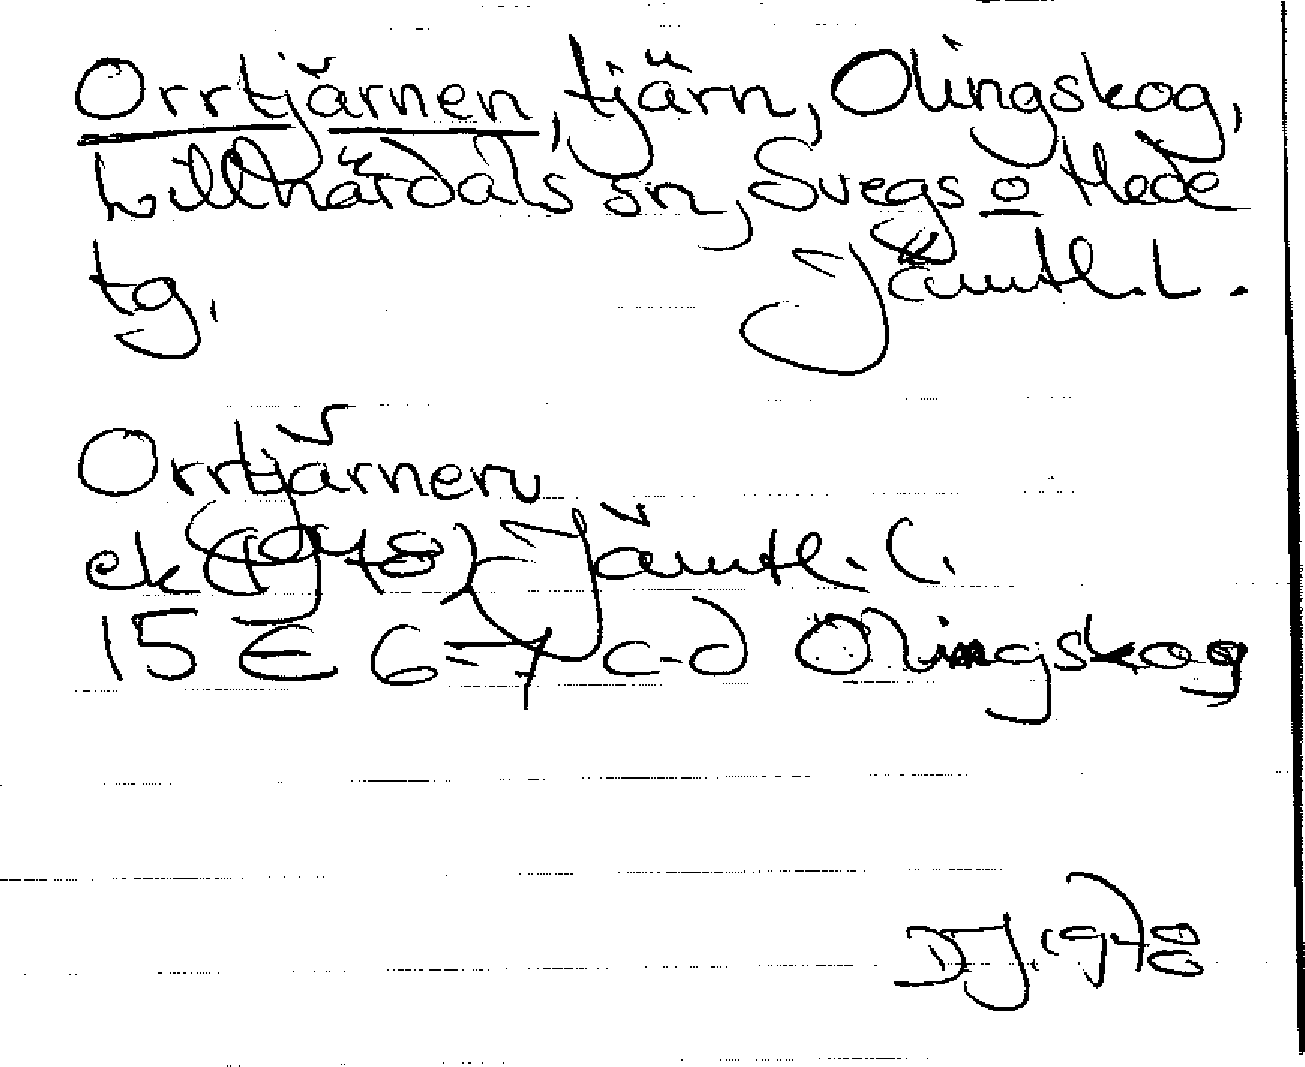 Orrtjärnen, tjärn, Olingskog,
Lillhärdals sn, Svegs o Hede
tg. Jämtl. L.
Orrtjärnen
ek (1978) Jämtl. L.
15 E 6-7 c-d Olingskog
DJ 1978